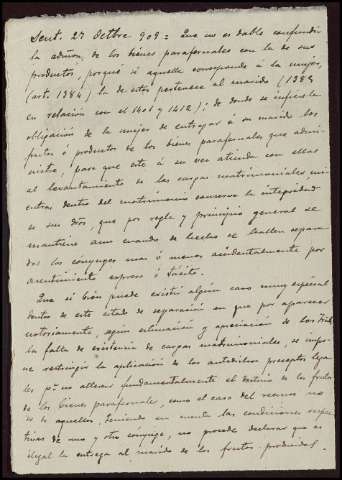 Sent. 27 Octbre 909 = Que no es dable confundir
la admon. de los bienes parafernales con la de sus
productos, porque si aquella corresponde á la mujer,
(art. 1384) la de estos pertenece al marido (1385
en relación con el 1401 y 1412); de donde se infiere la
obligación de la mujer de entregar á su marido los
frutos ó productos de los bienes parafernales que admi-
nistre, para que este á su vez atienda con ellos
al levantamiento de las cargas matrimoniales mi-
entras dentro del matrimonio conserve la integridad
de sus dros, que por regla y principio general se
mantiene aun cuando de hecho se hallen separa-
dos los cónyuges mas ó menos accidentalmente por
consentimiento expreso ó tácito.
Que si bien puede existir algún caso muy especial
dentro de este estado de separación en que por aparecer
notoriamente, según estimación y apreciación de los Trib.
la falta de existencia de cargas matrimoniales, se impo-
ne restringir la aplicación de los antedichos preceptos lega-
les pa. no alterar fundamentalmente el destino de los frutos
de los bienes parafernales, como el caso del recurso no
es de aquellos, teniendo en cuenta las condiciones respec-
tivas de uno y otro cónyuge, no procede declarar que es
ilegal la entrega al marido de los frutos producidos.